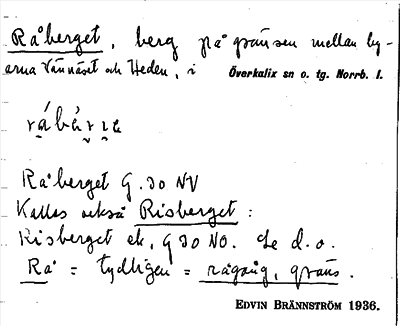 Råberget, berg på gränsen mellan by-
arna Vännäset och Heden, i Överkalix sn o. tg. Norrb. l.
Råberget G.30 NV
Kallas också Risberget:
Risberget ek. G 30 NO. Se d.o.
Rå = tydligen = rågång, gräns.
EDVIN BRÄNNSTRÖM 1936.